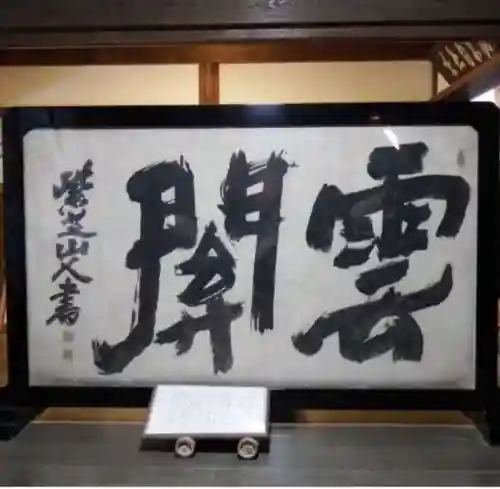 雲開
紫芝山人書